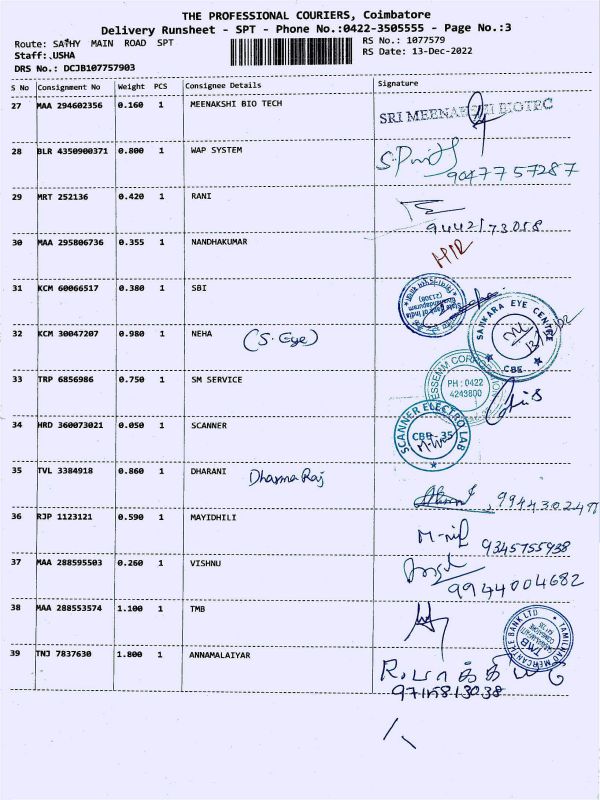 THE PROFESSIONAL COURIERS, Coimbatore
Delivery Runsheet - SPT - Phone No.:0422-3505555 - Page No.:3
Route: SATHY MAIN ROAD SPT
RS No.: 1077579
Staff: USHA
RS Date: 13-Dec-2022
DRS No.: DCJB107757903
S No Consignment No Weight PCS Consignee Details Signature
27 MAA 294602356 0.160 1 MEENAKSHI BIO TECH
SRI MEENAKSHI BIOTEC
28 BLR 4350900371 0.800 1 WAP SYSTEM
9047757287
29 MRT 252136 0.420 1 RANI
9442173058
30 MAA 295806736 0.355 1 NANDHAKUMAR
31 KCM 60066517 0.380 1 SBI
State Bank of India
32 KCM 30047207 0.980 1 NEHA (S. Eye)
SANKARA EYE CENTRE
CBE
33 TRP 6856986 0.750 1 SM SERVICE
PH : 0422
4243800
34 HRD 360073021 0.050 1 SCANNER
SCANNER ELECTRO LAB
CBE - 35
35 TVL 3384918 0.860 1 DHARANI Dharma Raj
36 RJP 1123121 0.590 1 MAYIDHILI
9345755938
37 MAA 288595503 0.260 1 VISHNU
9944004682
38 MAA 288553574 1.100 1 TMB
TAMILNAD MERCANTILE BANK LTD
TMB
39 TNJ 7837630 1.800 1 ANNAMALAIYAR
9715813038